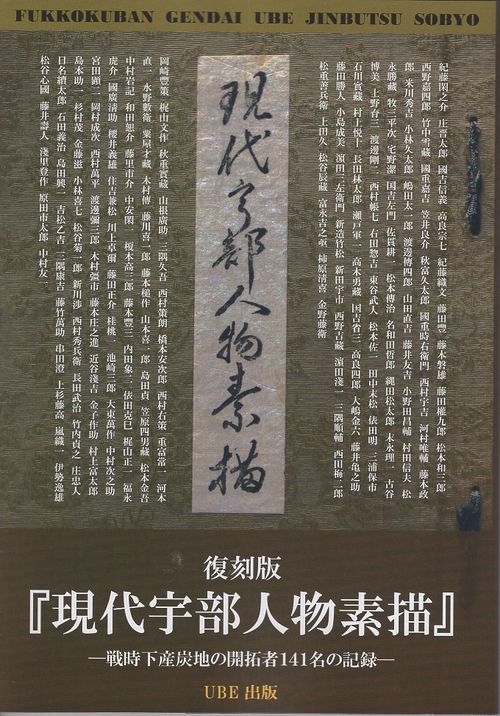 FUKKOKUBAN GENDAI UBE JINBUTSU SOBYO
紀藤閑之介 庄晋太郎 國吉信義 高良宗七 紀藤織文 藤田豊 藤本磐雄 藤田権九郎 松本和三郎
西野嘉四郎 竹中雪蔵 國重嘉吉 笠井良介 秋富久太郎 國重時右衛門 西村宇吉 河村唯輔 藤本政
郎 米川秀吉 小林久太郎 嶋田太一郎 渡邊傳四郎 山田直吉 藤井友吉 小野田昌輔 村田信夫 松
永勝蔵 牧三平次 宅野潔 国吉左門 佐貫耕一 松本傳治 名和田哲郎 縄田松太郎 末永理一 古谷
博美 上野育三 渡邊剛二 西村帳七 右田惣吉 東谷武人 松本佐一 田中末松 俵田明 三浦保市
石川實蔵 村上悦十 長田林太郎 瀬戸軍一 高木勇蔵 国吉省三 高良四郎 大嶋金六 藤井亀之助
藤田勝人 小島成美 濵田三左衛門 新造竹松 新田宇市 西野吉蔵 濵田淺一 三隅順輔 西田梅二郎
松重善兵衛 上田久 松谷辰蔵 富永吉之亟 柿原清喜 金野藤衛
現代宇部人物素描
岡崎豊策 梶山文作 秋重實蔵 山根廣助 三隅久吾 西村策朗 橋本安次郎 西村右策 重富常一 河本
直一 水野數衛 粟屋才蔵 木村傳 藤川喜一郎 藤本槌作 山本喜一郎 島田貞一 笠原四男蔵 松本金吾
中村岩記 和田恕介 藤里市介 中安閑一 榎本高三郎 藤本豊三 内田象三 依田克巳 梶山正一 福永
虎介 國廣清助 櫻井義雄 住吉兼松 川上卓爾 藤田正介 桂桃一 池崎三郎 大東萬作 中村次之助
宮田顕一 岡村成次 西村萬平 渡邊彌三郎 木村彌市 藤本庄之進 近谷淺吉 金子作助 村上富太郎
島本助一 杉村茂 金藤滋 小林喜七 松谷菊一郎 新川渉 西村秀兵衛 長田武治 竹内貞之 庄忠人
日名續太郎 石田義治 島田興一 吉松乙吉 三隅康吉 藤竹萬助 串田澄 上杉藤高 嵐織一 伊勢逸雄
松谷心國 藤井壽人 淺里登作 原田市太郎 中村友一
復刻版
『現代宇部人物素描』
―戦時下産炭地の開拓者141名の記録―
UBE出版